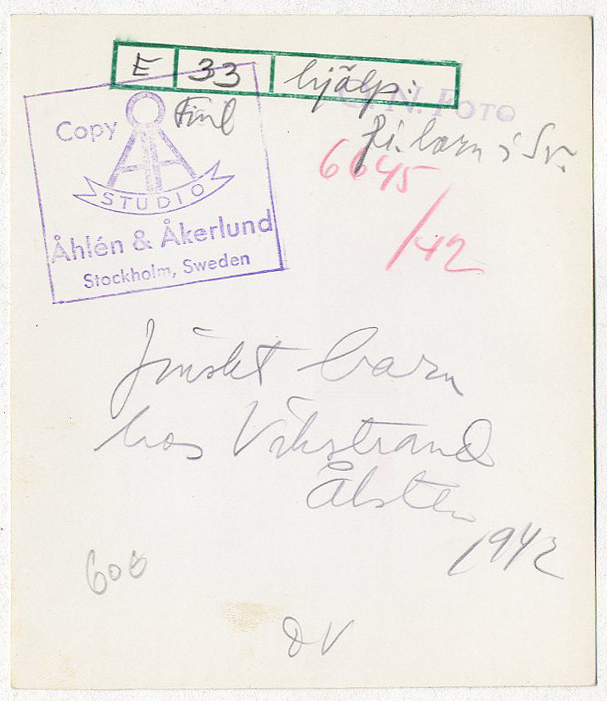 E 33 hjälp:
N. FOTO
Finl
fi. barn i Sv.
Copy
STUDIO
Åhlén & Åkerlund
Stockholm, Sweden
6645
/42
finskt barn
hos Vikstrand
Ålsten
1942
600